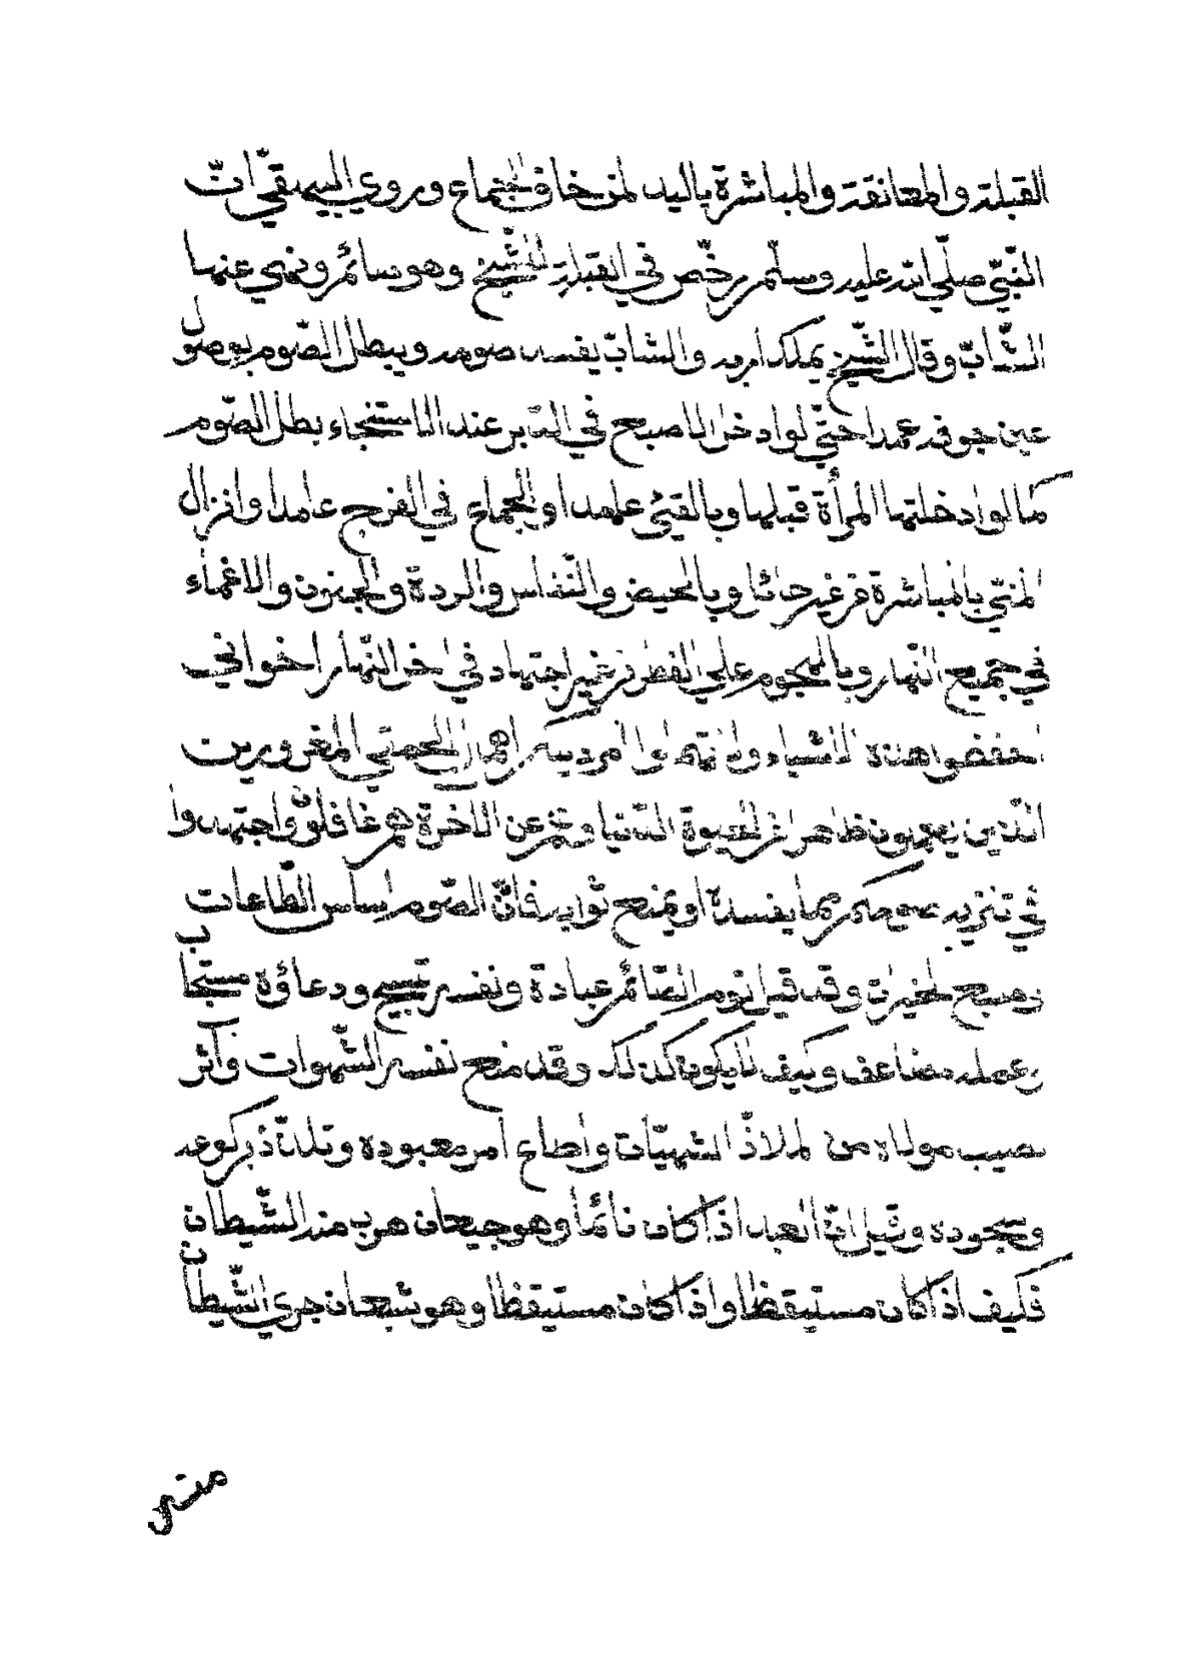 القبلة والمعانقة والمباشرة باليد لمن خاف الجماع وروي البيهقيّ انّ
النّبيّ صلّي الله عليه وسلّم رخّص في القبلةِ للشّيخ وهو صائم ونهي عنها
الشّابّ وقال الشّيخ يملك اربه والشابّ يفسد صومه ويبطل الصّوم بوصول
عين جوفه عمدا حتّي لو ادخل الاصبح في الدّبر عند الاستنجاء بطل الصّوم
كما لو ادخلتها المرأة قبلها وبالقيئ عامدا والجماع في الفرج عامدا وانزال
المنيّ بالمباشرة من غير حائل وبالحيض والنّفاس والردة والجنون والاغماء
في جميع النّهار وبالهجوم علي الفطر من غير اجتهاد في اخر النّهار اخواني
احفضوا هذه الاشياء وانتهوا المغرورين
الّذين يعلمون ظاهرا من الحيوة الدّنيا وهم عن الاخرة هم غافلون واجتهدوا
في تنزيه صومكم ممّا يفسده او يمنح ثوابه فانّ الصّوم اساس الطّاعات
ومنبع الخيرات وقد قيل نوم الصّائم عبادة ونفسه تسبيح ودعاؤه مستجاب
وعمله مضاعف وكيف لا يكون كذلك وقد منح نفسه الشّهوات وآثر
نصيب مولاه من الملاذّ الشهيّات واطاع امر معبوده وتلذّذ بركوعه
وسجوده وقيل انّ العبد اذا كان نائما وهو جيعان هرب منه الشّيطان
فكيف اذا كان مستيقظا واذا كان مستيقظا وهو شبعان جري الشّيطان